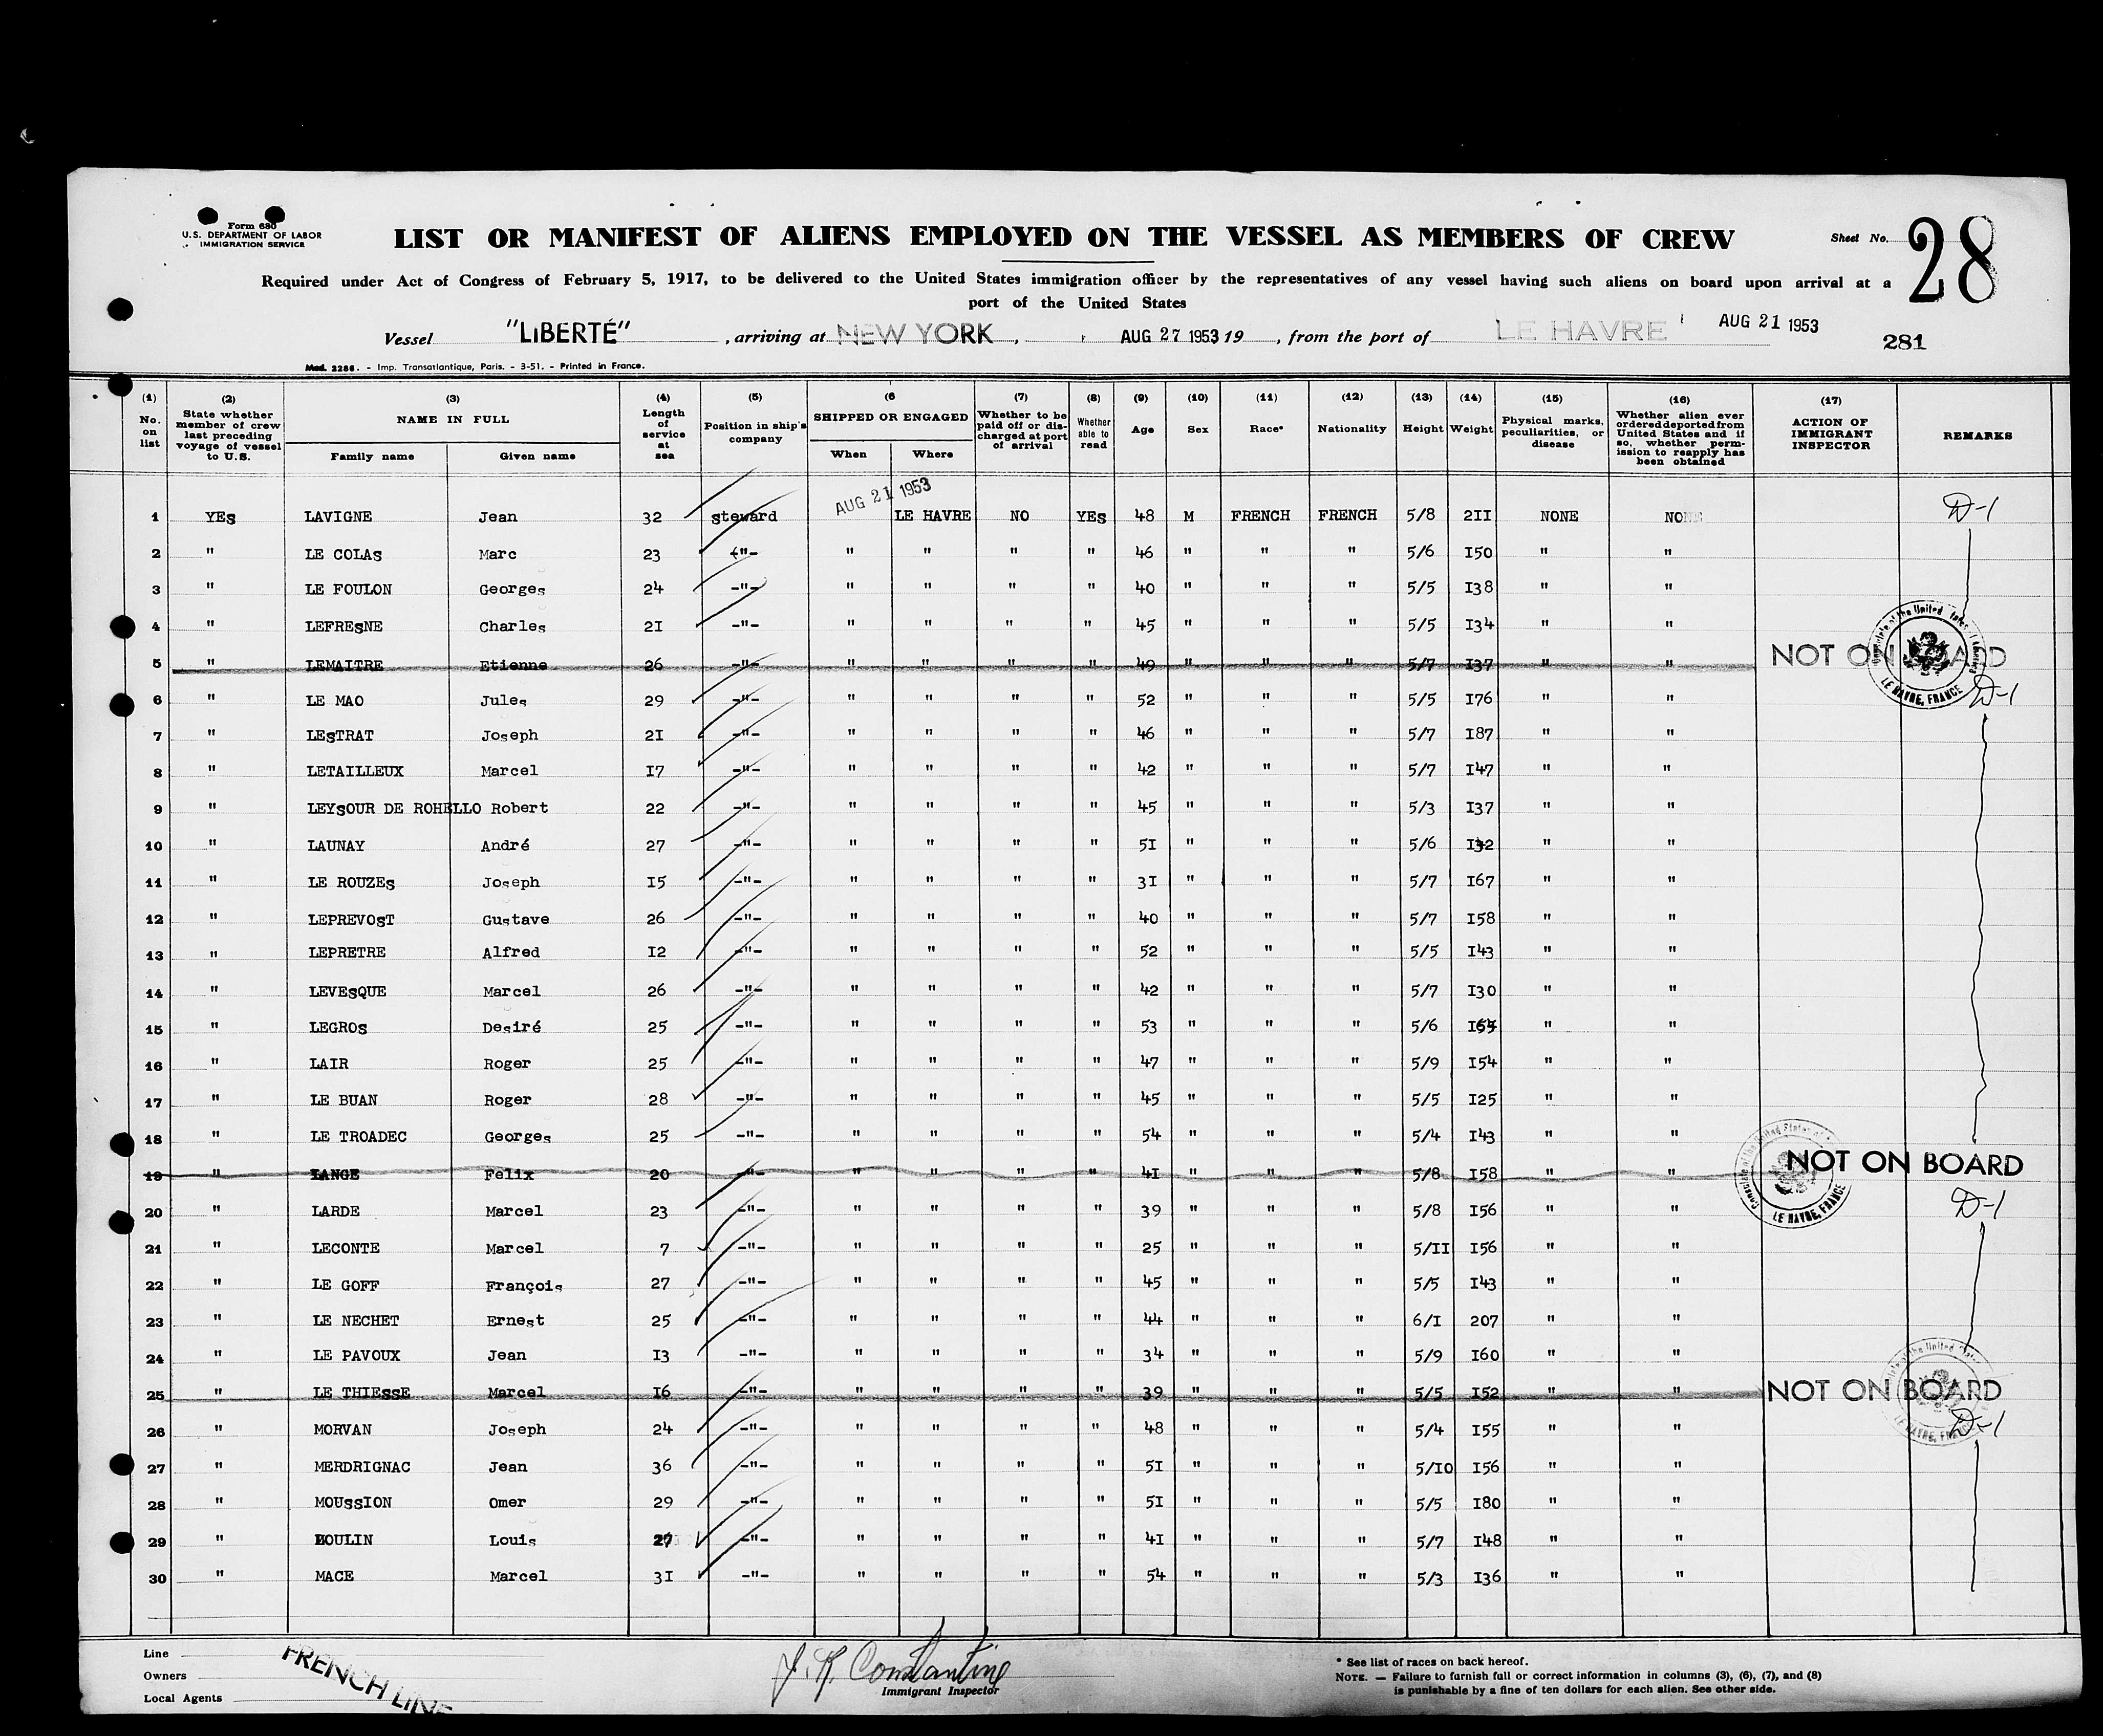 Form 680
U.S. DEPARTMENT OF LABOR
IMMIGRATION SERVICE
LIST OR MANIFEST OF ALIENS EMPLOYED ON THE VESSEL AS MEMBERS OF CREW
Sheet No. 28
Required under Act of Congress of February 5, 1917, to be delivered to the United States immigration officer by the representatives of any vessel having such aliens on board upon arrival at a
port of the United States
Vessel "LIBERTÉ" , arriving at NEW YORK , AUG 27 1953 19 , from the port of LE HAVRE AUG 21 1953
281
Mod. 2286. - Imp. Transatlantique, Paris. - 3-51. - Printed in France.
(1) No. on list (2) State whether member of crew last preceding voyage of vessel to U.S. (3) NAME IN FULL Family name Given name (4) Length of service at sea (5) Position in ship's company (6 SHIPPED OR ENGAGED When Where (7) Whether to be paid off or discharged at port of arrival (8) Whether able to read (9) Age (10) Sex (11) Race* (12) Nationality (13) Height (14) Weight (15) Physical marks, peculiarities, or disease (16) Whether alien ever ordered deported from United States and if so, whether permission to reapply has been obtained (17) ACTION OF IMMIGRANT INSPECTOR REMARKS
1 YEs LAVIGNE Jean 32 steward AUG 21 1953 LE HAVRE NO YEs 48 M FRENCH FRENCH 5/8 2II NONE NONE D-1
2 " LE COLAs Marc 23 -"- " " " " 46 " " " 5/6 I50 " "
3 " LE FOULON Georges 24 -"- " " " " 40 " " " 5/5 I38 " "
4 " LEFREsNE Charles 2I -"- " " " " 45 " " " 5/5 I34 " "
5 " LEMAITRE Etienne 26 -"- " " " " 49 " " " 5/7 I37 " " NOT ON BOARD
LE HAVRE, FRANCE
6 " LE MAO Jules 29 -"- " " " " 52 " " " 5/5 I76 " " D-1
7 " LEsTRAT Joseph 2I -"- " " " " 46 " " " 5/7 I87 " "
8 " LETAILLEUX Marcel I7 -"- " " " " 42 " " " 5/7 I47 " "
9 " LEYsOUR DE ROHELLO Robert 22 -"- " " " " 45 " " " 5/3 I37 " "
10 " LAUNAY André 27 -"- " " " " 5I " " " 5/6 I32 " "
11 " LE ROUZEs Joseph I5 -"- " " " " 3I " " " 5/7 I67 " "
12 " LEPREVOsT Gustave 26 -"- " " " " 40 " " " 5/7 I58 " "
13 " LEPRETRE Alfred I2 -"- " " " " 52 " " " 5/5 I43 " "
14 " LEVEsQUE Marcel 26 -"- " " " " 42 " " " 5/7 I30 " "
15 " LEGROs Desiré 25 -"- " " " " 53 " " " 5/6 " "
16 " LAIR Roger 25 -"- " " " " 47 " " " 5/9 I54 " "
17 " LE BUAN Roger 28 -"- " " " " 45 " " " 5/5 I25 " "
18 " LE TROADEC Georges 25 -"- " " " " 54 " " " 5/4 I43 " "
19 " LANGE Felix 20 -"- " " " " 4I " " " 5/8 I58 " " NOT ON BOARD
LE HAVRE, FRANCE
20 " LARDE Marcel 23 -"- " " " " 39 " " " 5/8 I56 " " D-1
21 " LECONTE Marcel 7 -"- " " " " 25 " " " 5/II I56 " "
22 " LE GOFF François 27 -"- " " " " 45 " " " 5/5 I43 " "
23 " LE NECHET Ernest 25 -"- " " " " 44 " " " 6/I 207 " "
24 " LE PAVOUX Jean I3 -"- " " " " 34 " " " 5/9 I60 " "
25 " LE THIEssE Marcel I6 -"- " " " " 39 " " " 5/5 I52 " " NOT ON BOARD
26 " MORVAN Joseph 24 -"- " " " " 48 " " " 5/4 I55 " " D-1
27 " MERDRIGNAC Jean 36 -"- " " " " 5I " " " 5/I0 I56 " "
28 " MOUssION Omer 29 -"- " " " " 5I " " " 5/5 I80 " "
29 " MOULIN Louis 27 -"- " " " " 4I " " " 5/7 I48 " "
30 " MACE Marcel 3I -"- " " " " 54 " " " 5/3 I36 " "
Line
Owners
Local Agents
FRENCH LINE
J. R. Constantine
Immigrant Inspector
* See list of races on back hereof.
NOTE. — Failure to furnish full or correct information in columns (3), (6), (7), and (8)
is punishable by a fine of ten dollars for each alien. See other side.